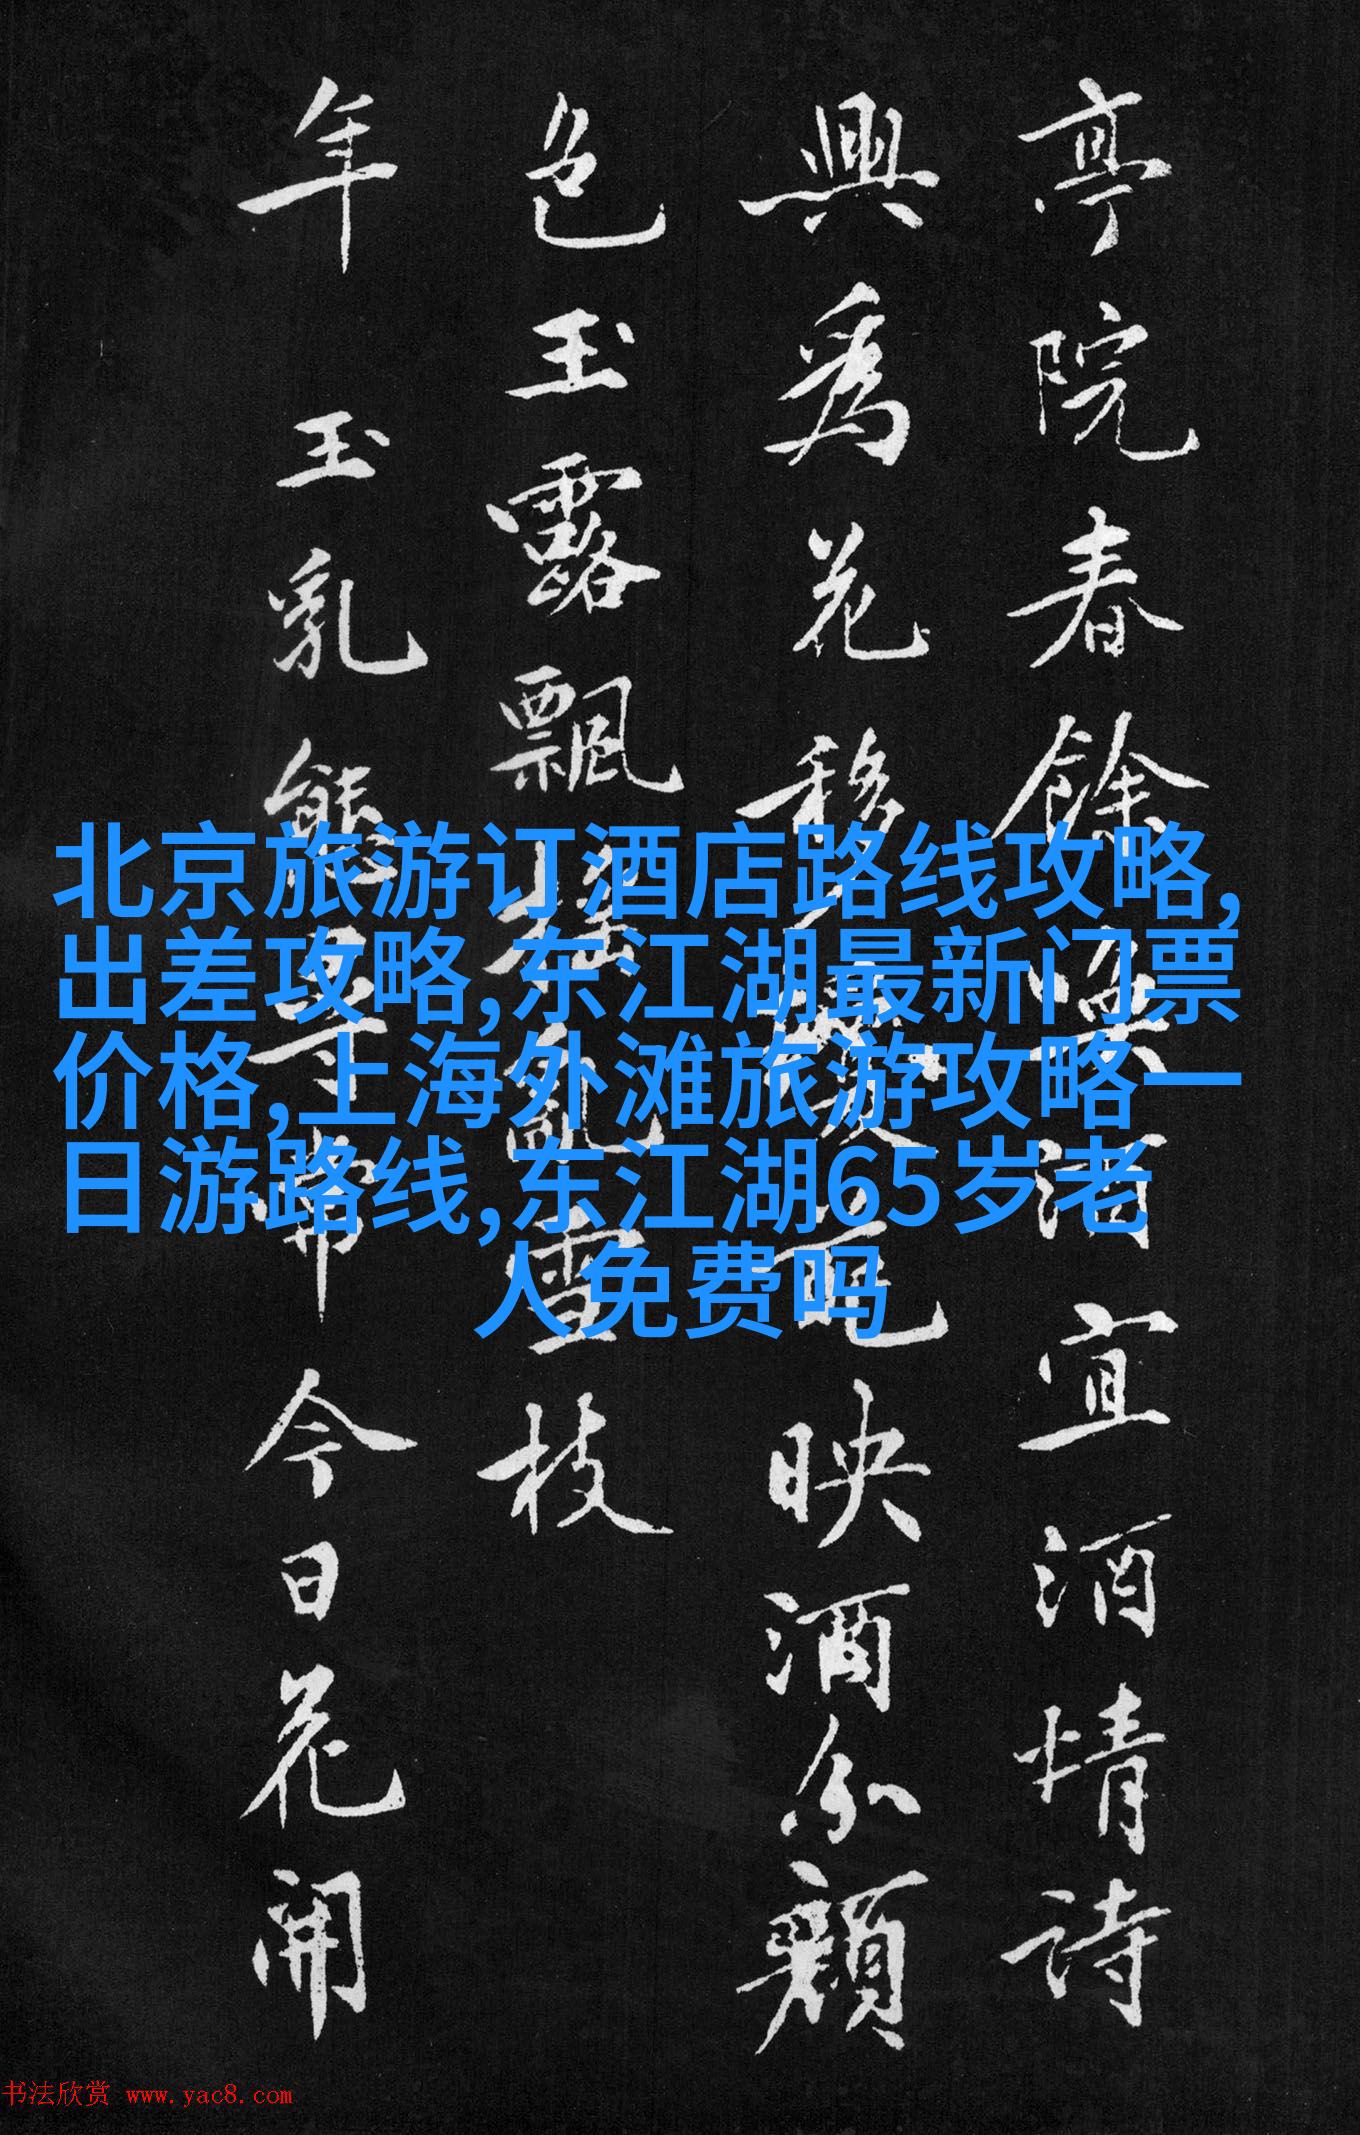 亭院春餘宜酒情詩
興為花移映酒分顏
色玉露飄搖亂雪枝
年玉乳態尋常今日花開
北京旅游订酒店路线攻略,
出差攻略,东江湖最新门票
价格,上海外滩旅游攻略一
日游路线,东江湖65岁老
人免费吗
书法欣赏 www.yac8.com